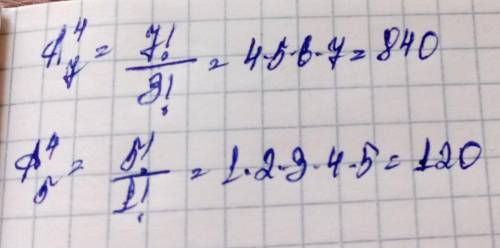 A₇⁴ = 7!/3! = 4·5·6·7 = 840
A₅⁴ = 5!/1! = 1·2·3·4·5 = 120